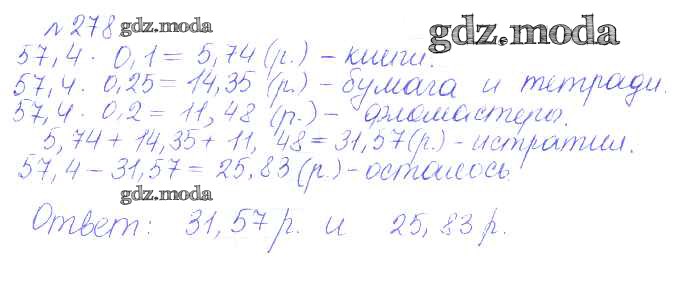 № 278 gdz.moda gdz.moda
57,4 · 0,1 = 5,74 (р.) - книги.
57,4 · 0,25 = 14,35 (р.) - бумага и тетради.
57,4 · 0,2 = 11,48 (р.) - фломастеры.
5,74 + 14,35 + 11,48 = 31,57 (р.) - истратил.
57,4 - 31,57 = 25,83 (р.) - осталось
gdz.moda
Ответ: 31,57 р. и 25,83 р.